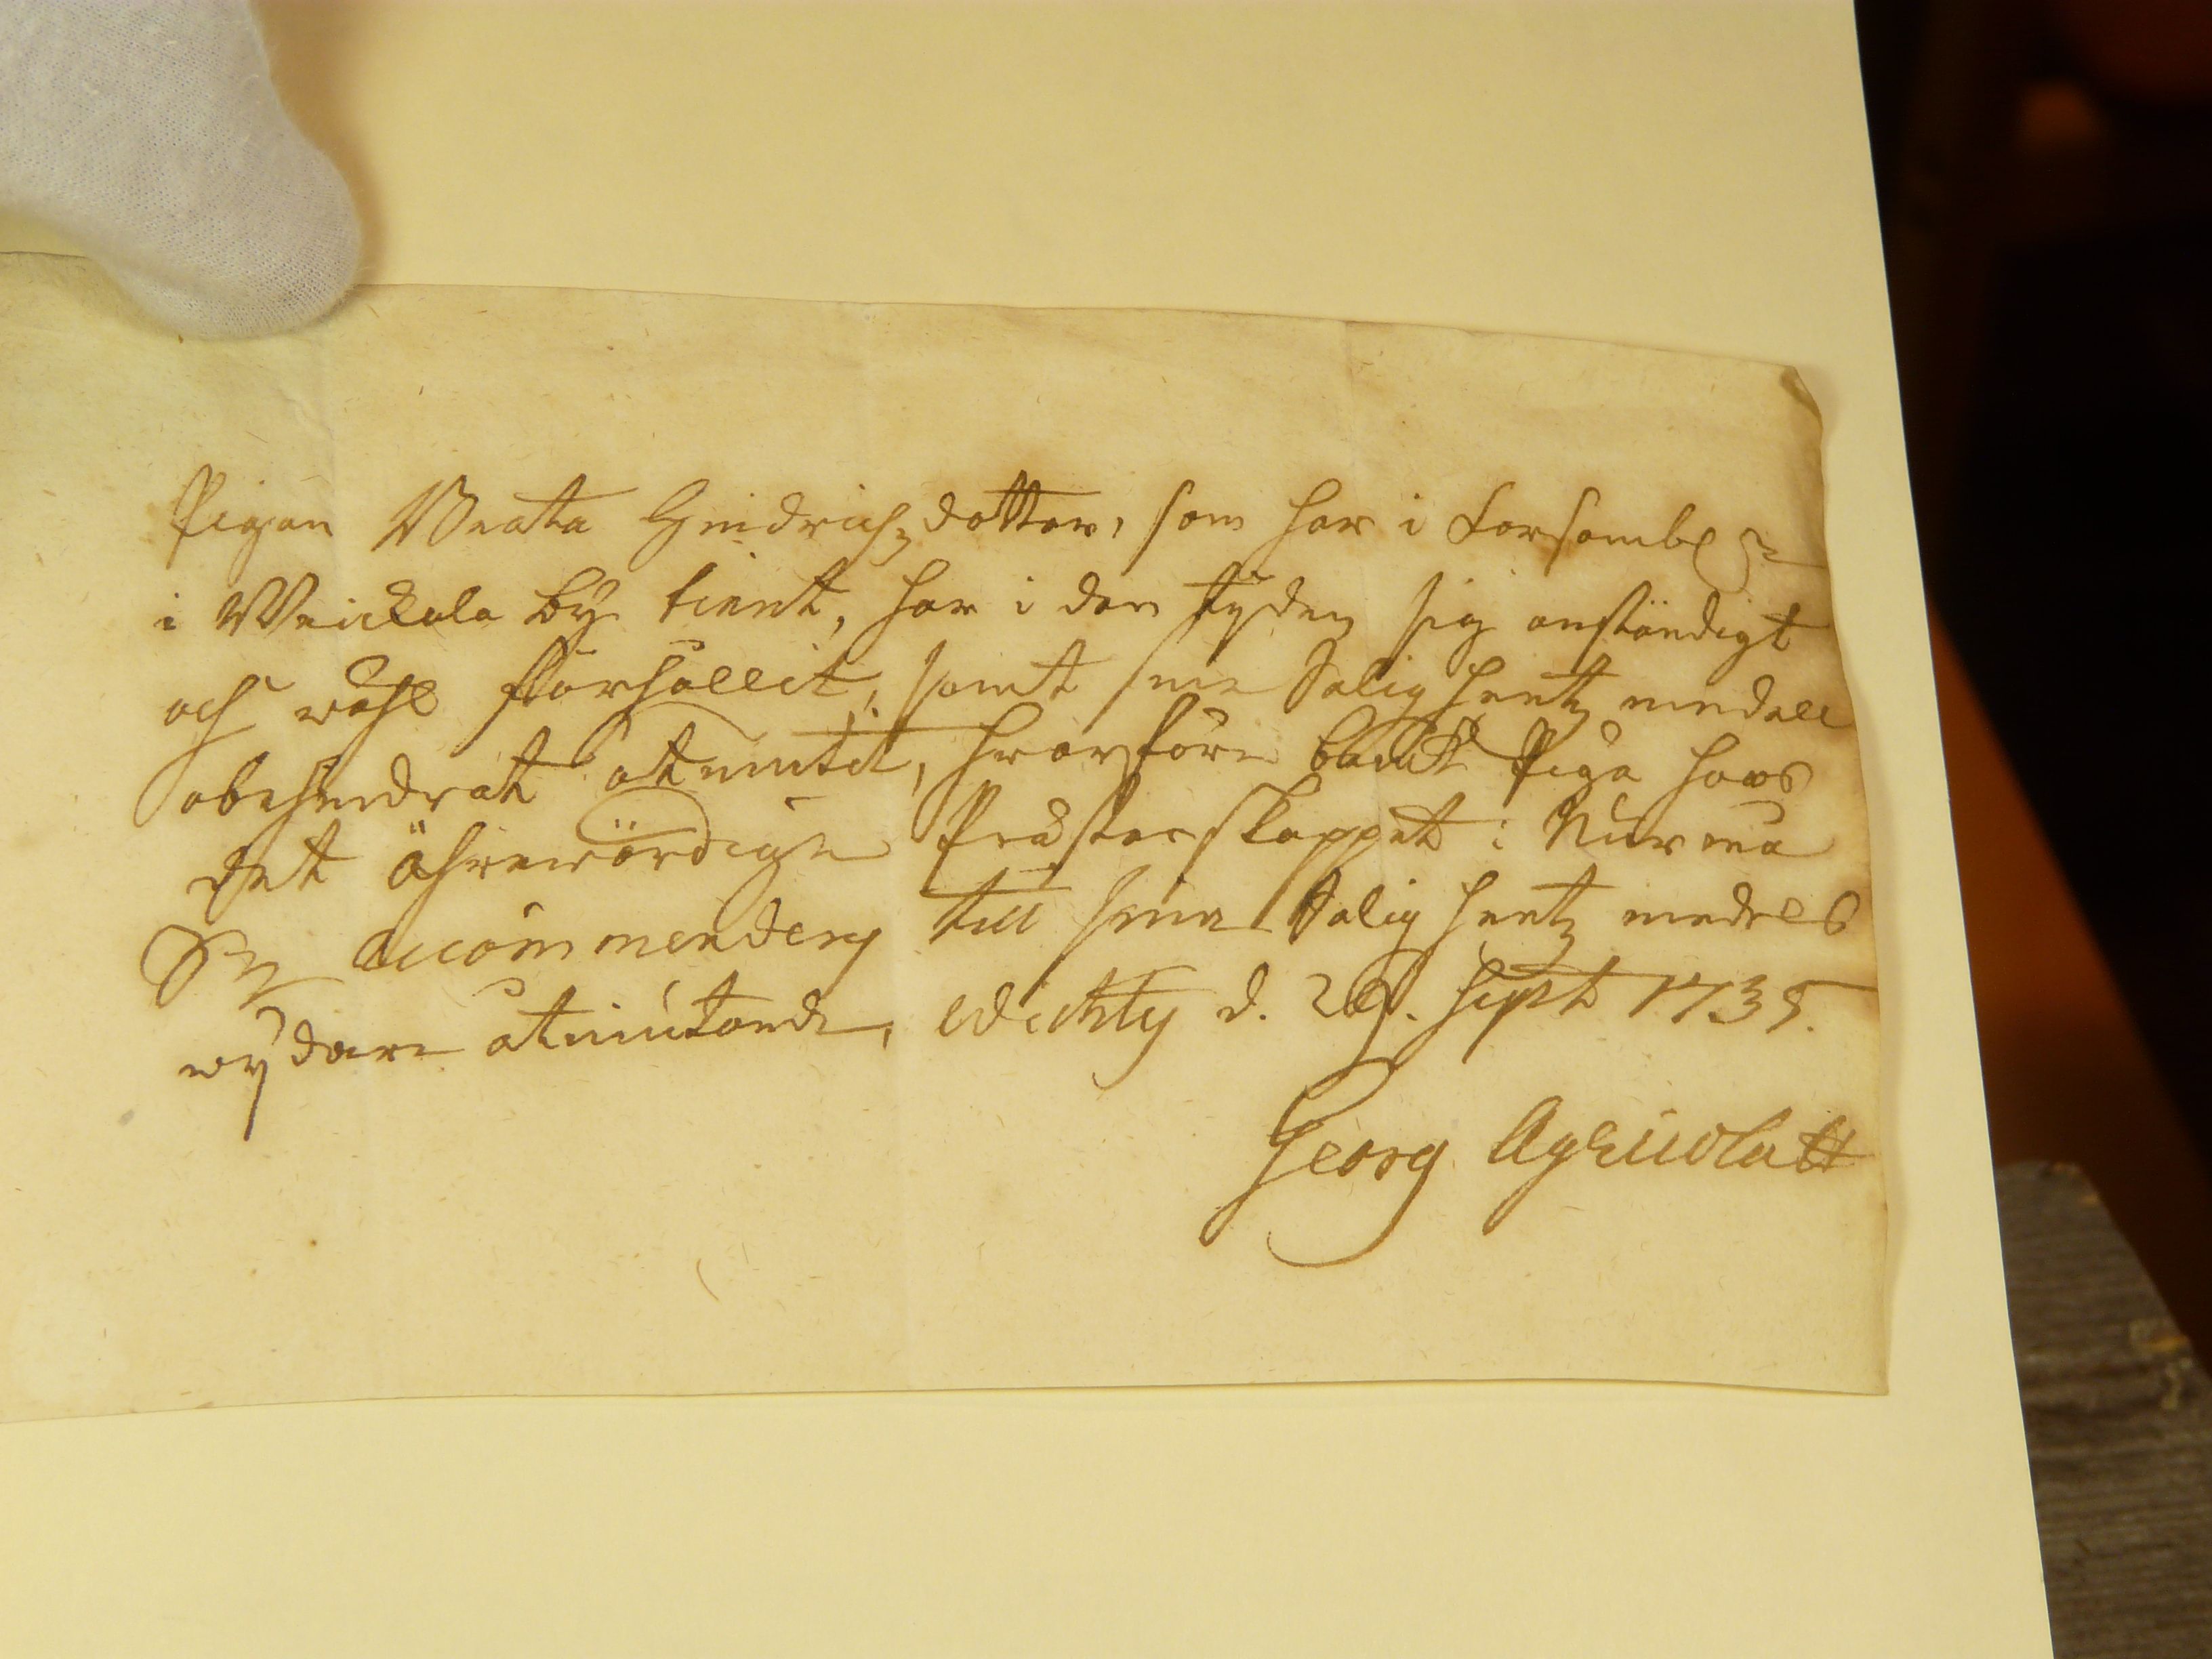 Pigan Beata Hindrichz dotter, som har i Forsambl:n
i Weickala by tient, har i den tyden sig anständigt
och wähl förhållit, samt sine Salighetz medell
obehindrat åtniutit, hwarföre bem:te Piga hoos
det ährewördige Prästerskappet i Nurmis
recommenderas till sine Salighetz medels
wydare åtniutande, Wichty d. 29. Sept 1735.
Georg Agricolatt